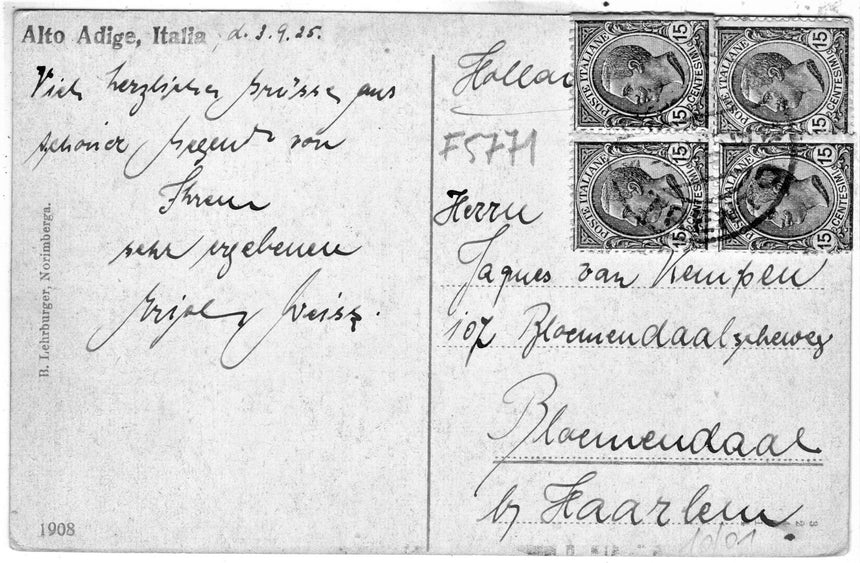 Alto Adige, Italia, d. 3.9.25.
Viele herzliche Grüsse aus
schöner Gegend von
Ihrem
sehr ergebenen
Weiss.
B. Lehrburger, Norimberga.
1908
Holland
F5771
POSTE ITALIANE 15 CENTESIMI 15
POSTE ITALIANE 15 CENTESIMI 15
POSTE ITALIANE 15 CENTESIMI 15
POSTE ITALIANE 15 CENTESIMI 15
Herrn
Jaques van Kempen
107 Bloemendaalscheweg
Bloemendaal
by Haarlem